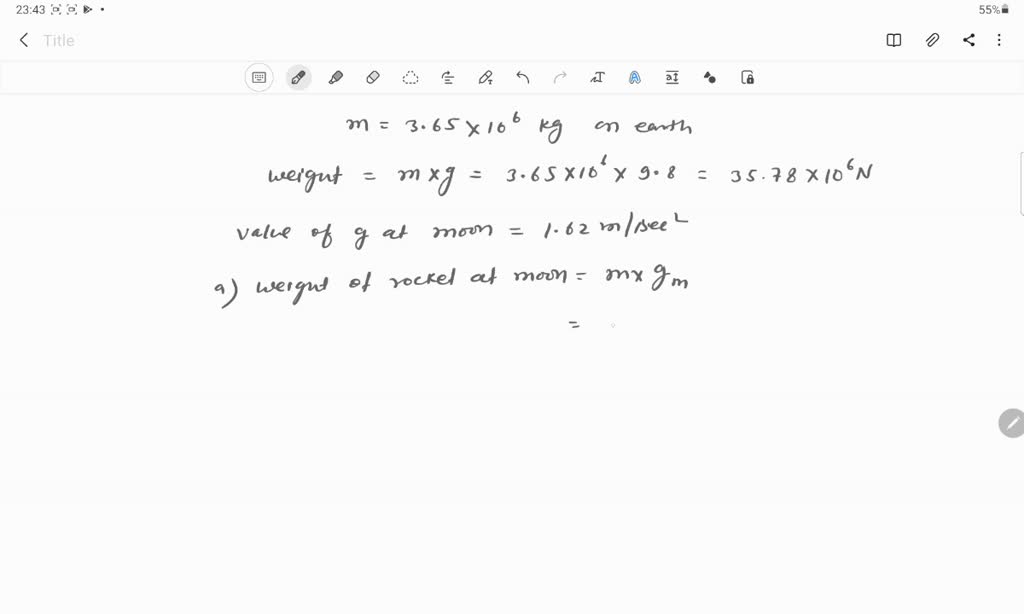 23:43
55%
Title
m = 3.65 × 10⁶ kg on earth
weignt = m × g = 3.65 × 10⁶ × 9.8 = 35.78 × 10⁶ N
value of g at moon = 1.62 m/sec²
a) weignt of rocket at moon = m × gₘ
=